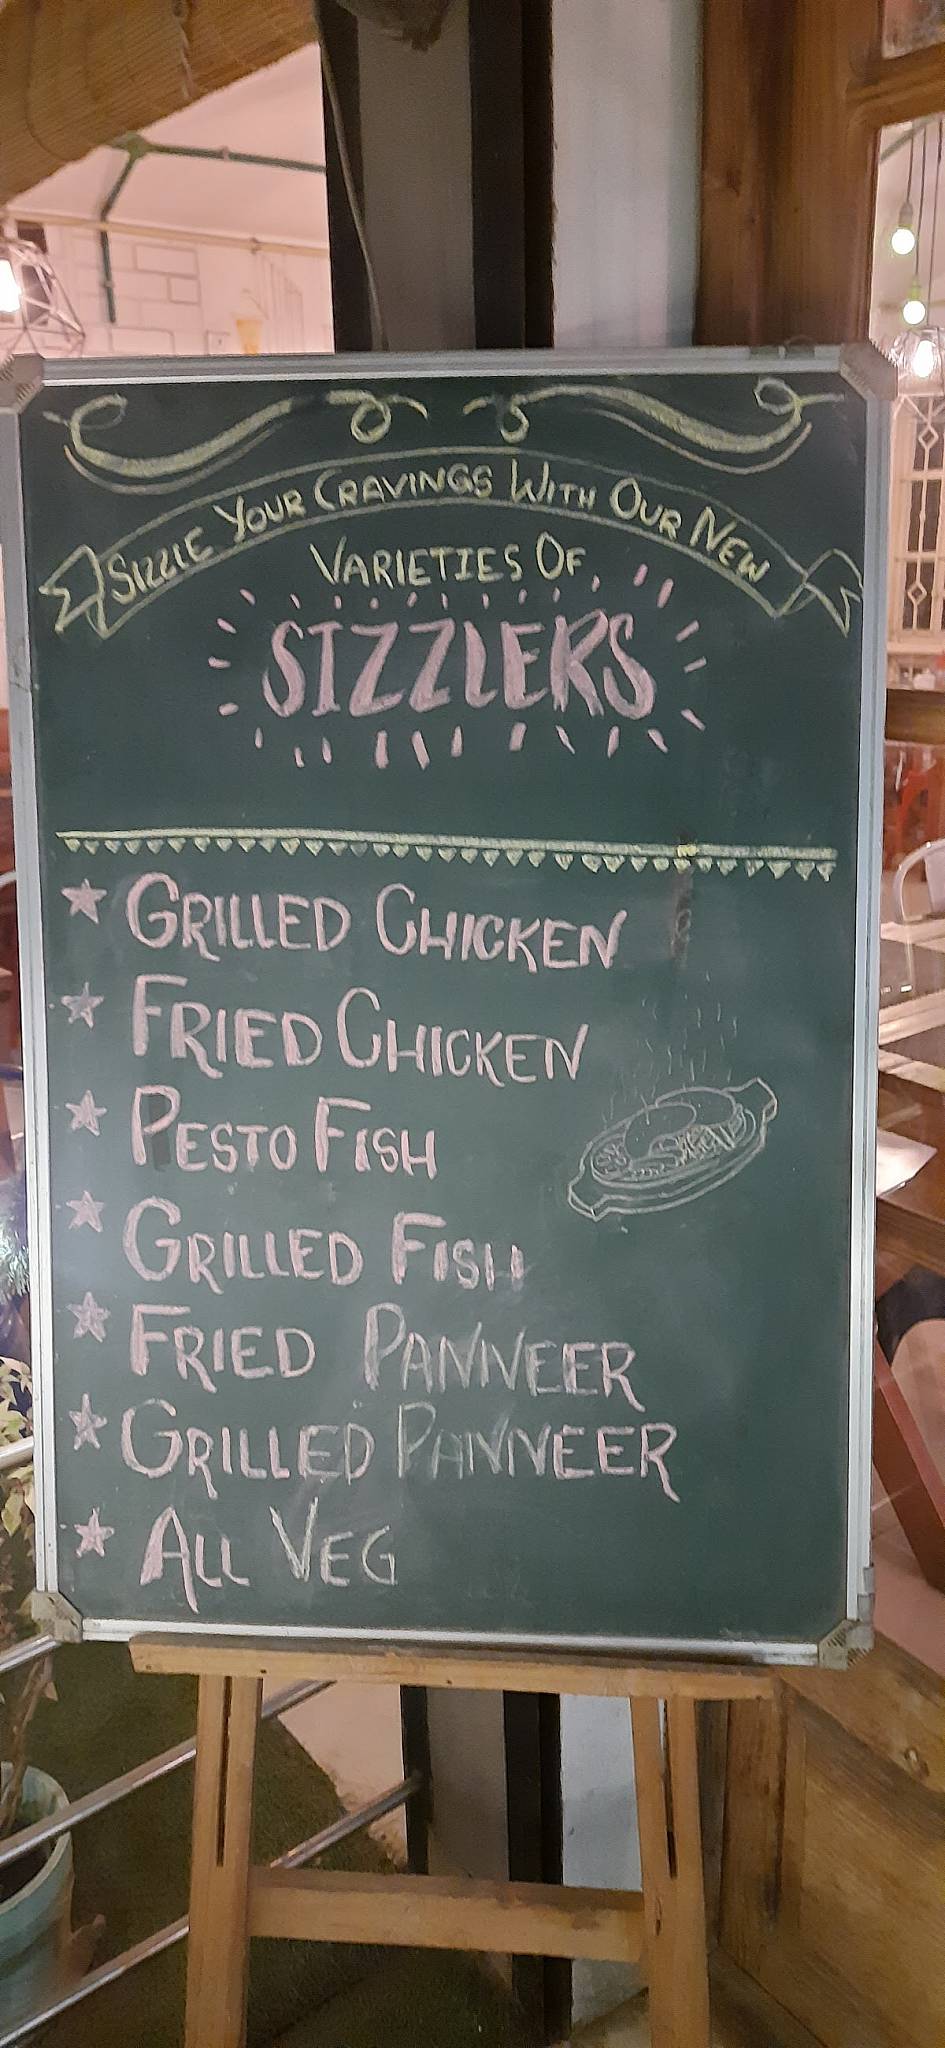 Sizzle Your Cravings With Our New
Varieties Of
SIZZLERS
Grilled Chicken
Fried Chicken
Pesto Fish
Grilled Fish
Fried Panneer
Grilled Panneer
All Veg